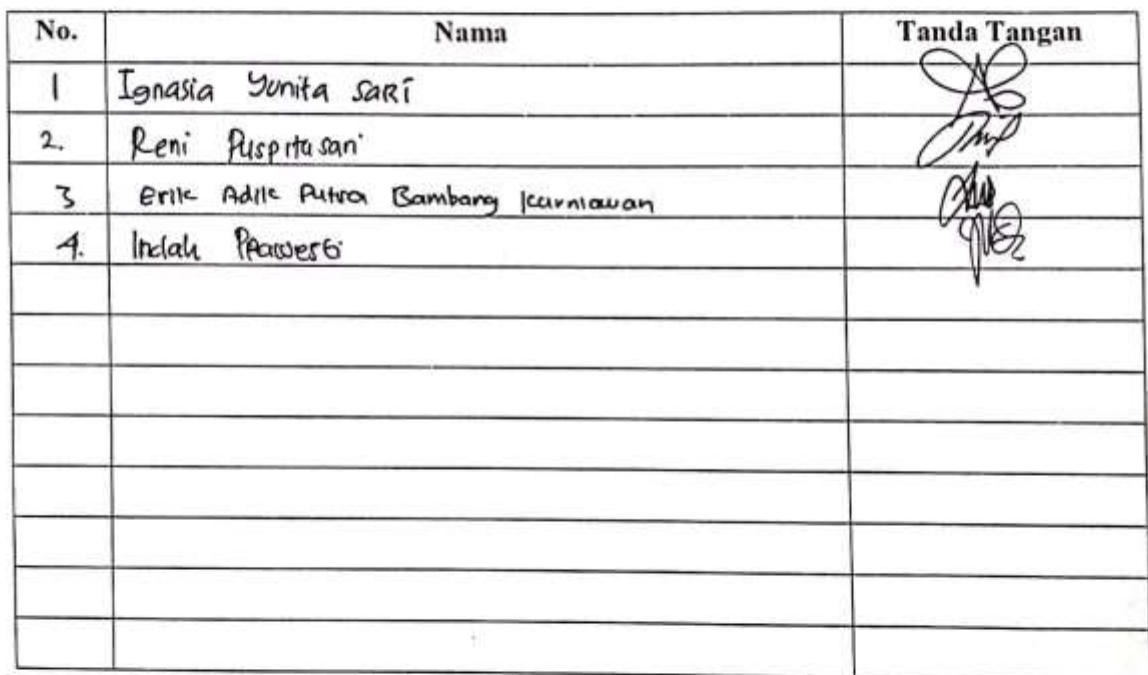 No. Nama Tanda Tangan
1 Ignasia Yunita Sari
2. Reni Puspitasari
3 Erik Adik Putra Bambang Kurniawan
4. Indah Prawesti